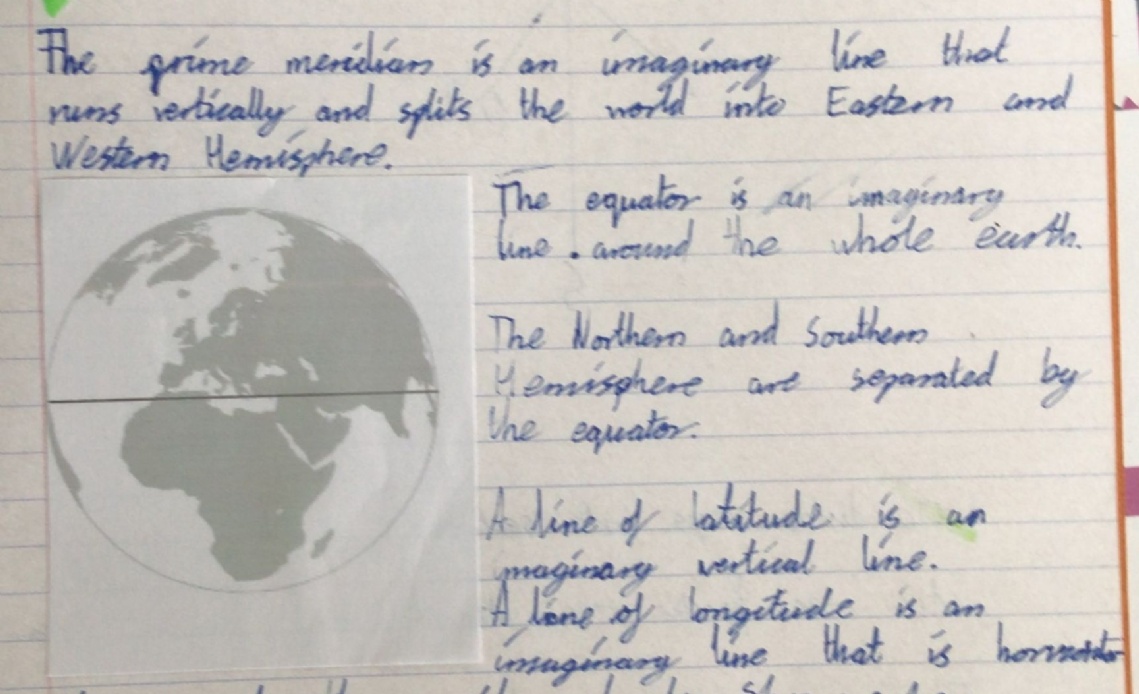 The prime meridian is an imaginary line that
runs vertically and splits the world into Eastern and
Western Hemisphere.
The equator is an imaginary
line . around the whole earth.
The Northern and Southern
Hemisphere are separated by
the equator.
A line of latitude is an
imaginary vertical line.
A line of longitude is an
imaginary line that is